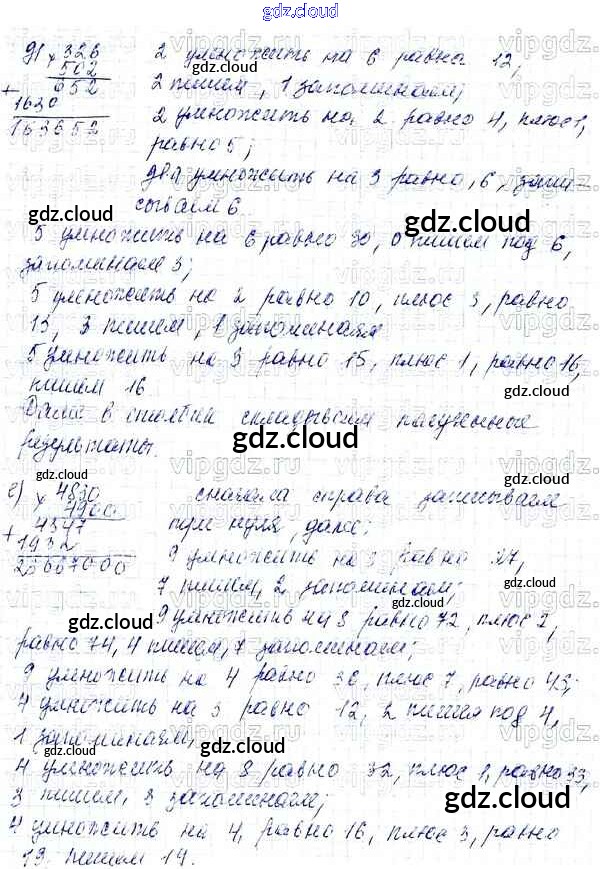 gdz.cloud
д) 326 2 умножить на 6 равно 12,
× 502 2 пишем, 1 запоминаем;
+ 652 2 умножить на 2 равно 4, плюс 1,
1630 равно 5;
163652 два умножить на 3 равно, 6, запи-
сываем 6.
5 умножить на 6 равно 30, 0 пишем под 6,
запоминаем 3;
5 умножить на 2 равно 10, плюс 3, равно
13, 3 пишем, 1 запоминаем
5 умножить на 3 равно 15, плюс 1, равно 16,
пишем 16
Далее в столбик складываем полученные
результаты.
е) 4830 сначала справа записываем
× 4900 три нуля, далее:
+ 4347 9 умножить на 3 равно 27,
1932 7 пишем, 2 запоминаем;
23667000
9 умножить на 8 равно 72, плюс 2,
равно 74, 4 пишем, 7 запоминаем;
9 умножить на 4 равно 36, плюс 7, равно 43;
4 умножить на 3 равно 12, 2 пишем под 4,
1 запоминаем,
4 умножить на 8 равно 32, плюс 1, равно 33,
3 пишем, 3 запоминаем;
4 умножить на 4, равно 16, плюс 3, равно
19. пишем 19.